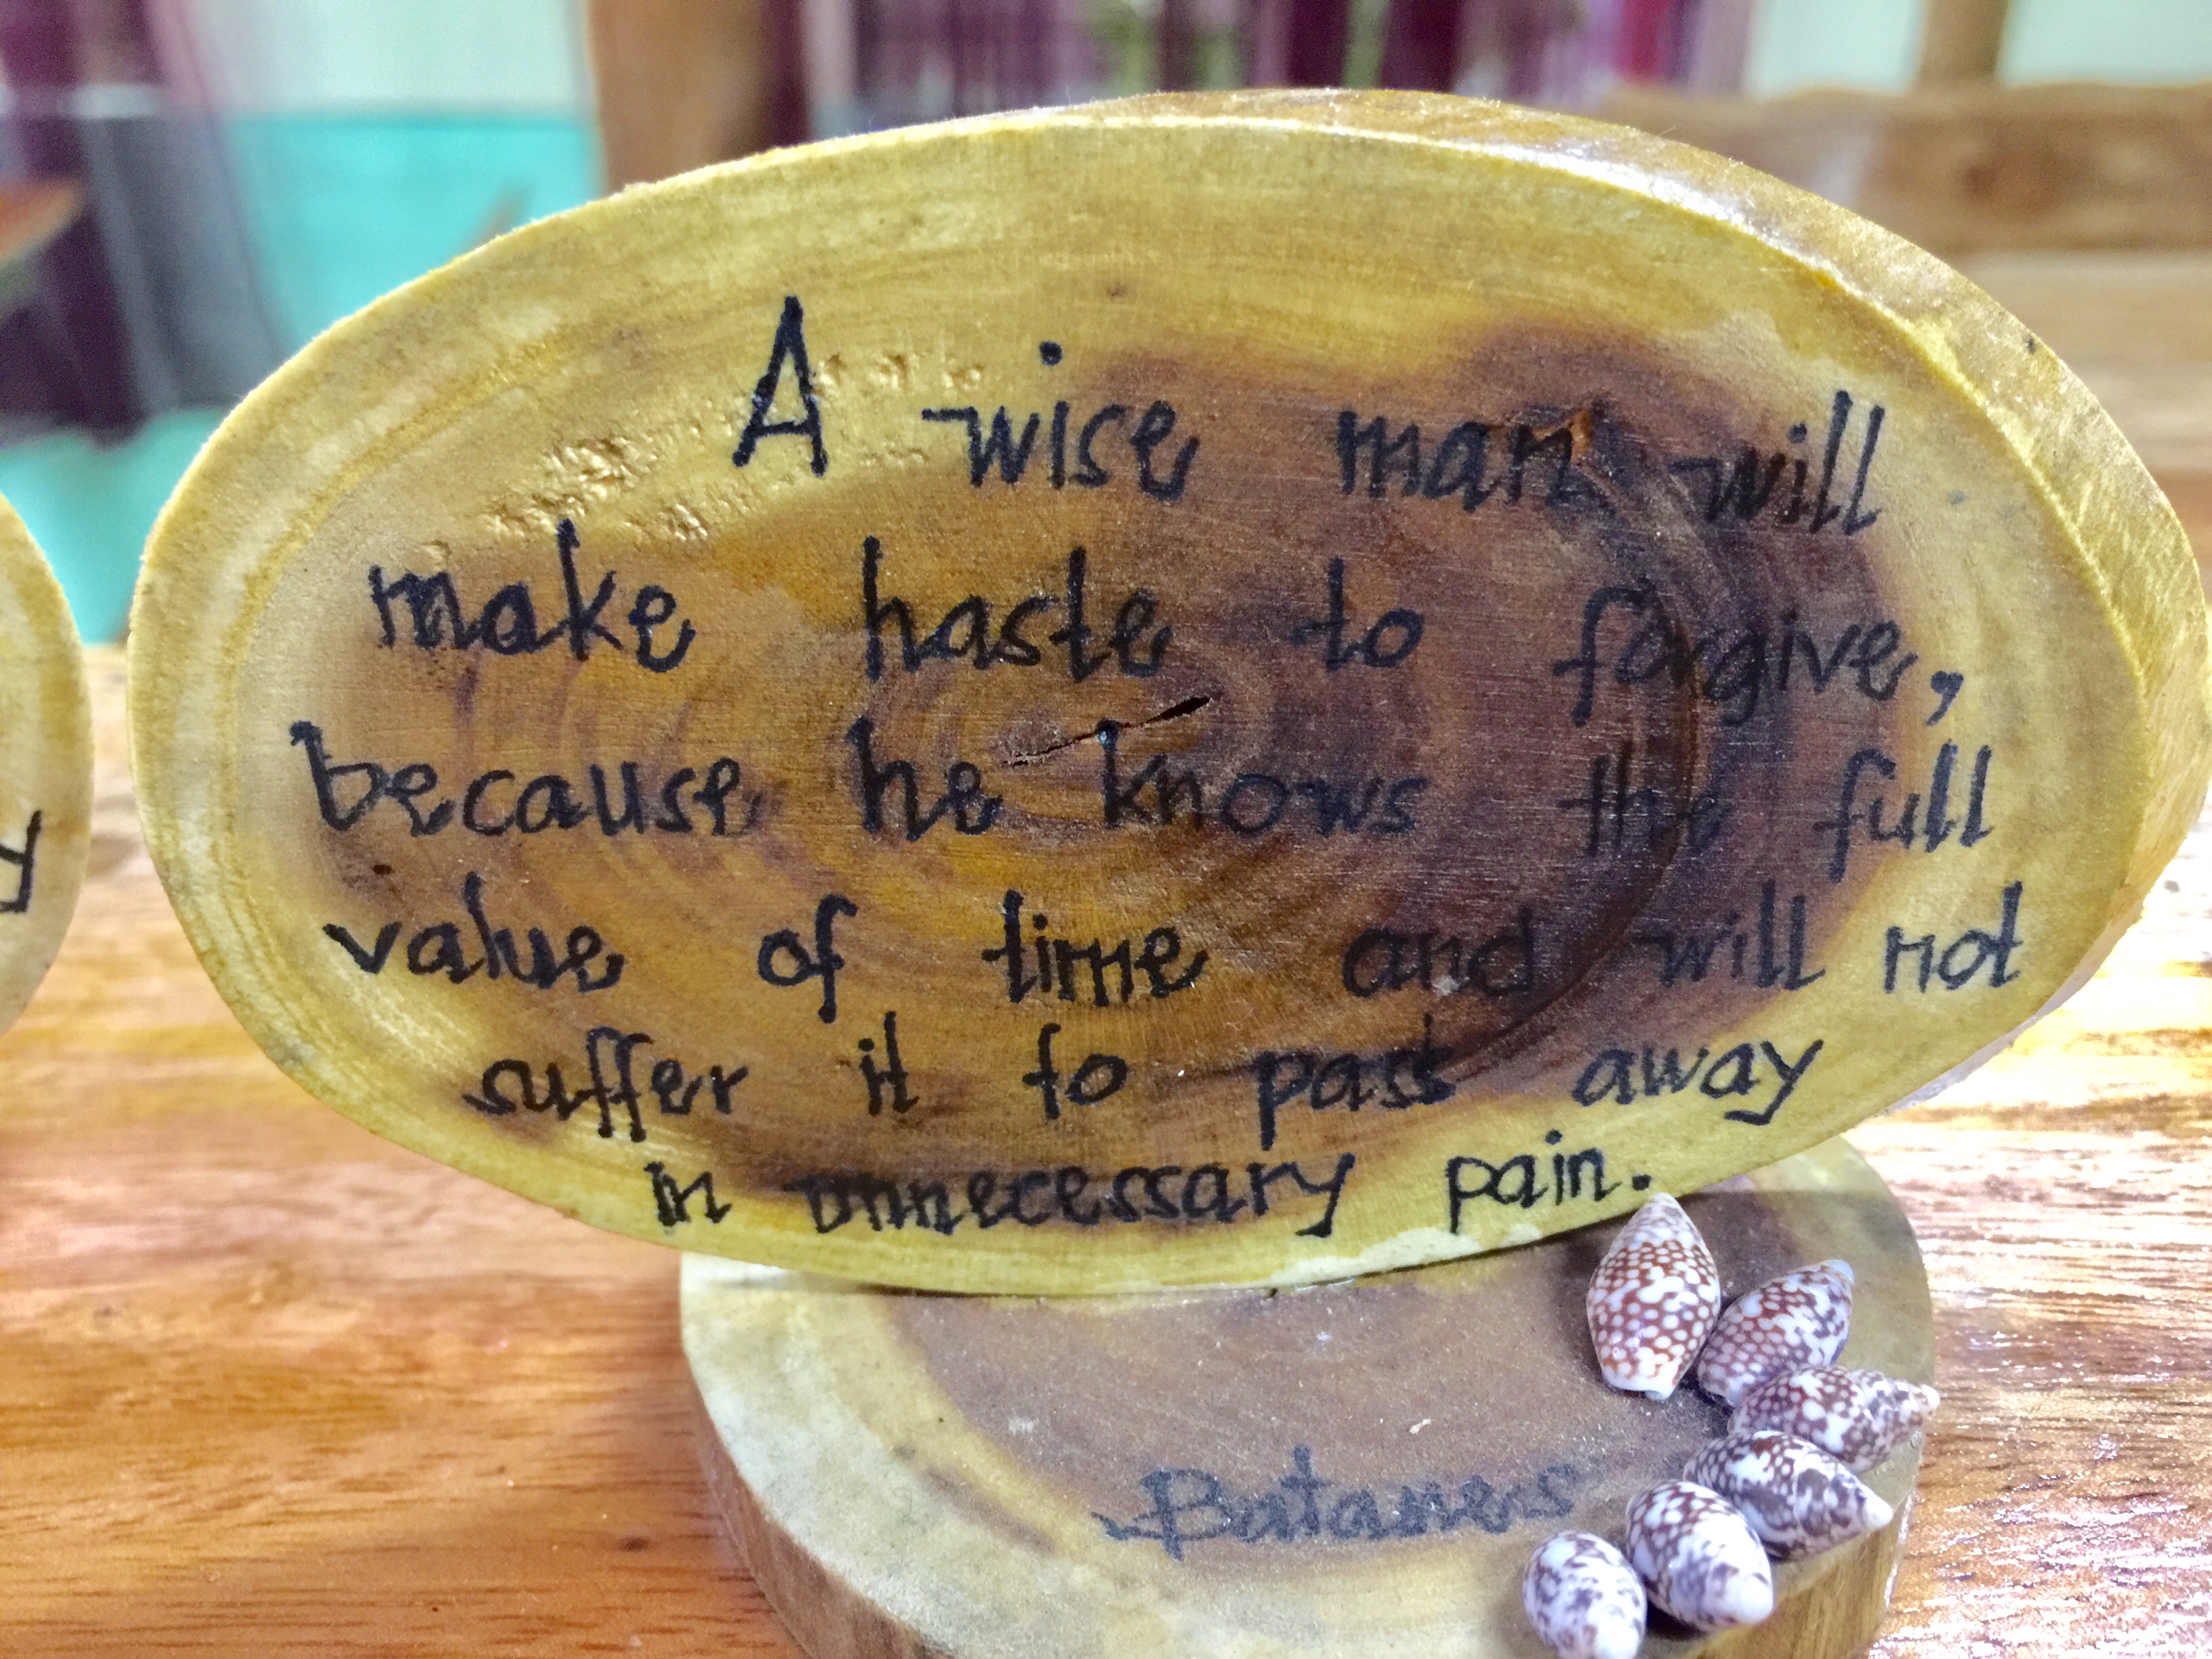 A wise man will
make haste to forgive,
because he knows the full
value of time and will not
suffer it to pass away
in unnecessary pain.
Batanes
y